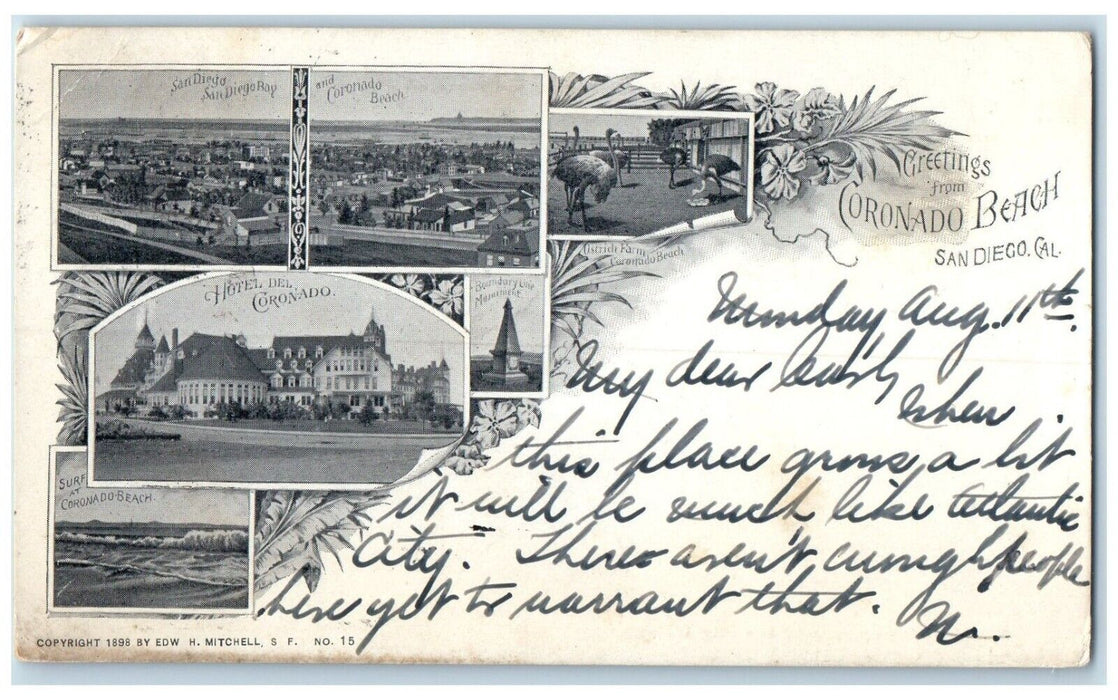 San Diego
San Diego Bay
and
Coronado
Beach
Ostrich Farm
Coronado Beach
Greetings
from
CORONADO BEACH
SAN DIEGO, CAL.
HOTEL DEL
CORONADO.
Boundary Line
Monument
SURF
AT
CORONADO BEACH.
Monday Aug. 11th.
My dear
When
this place grows a bit
it will be much like Atlantic
City. There aren't enough people
here yet to warrant that.
M.
COPYRIGHT 1898 BY EDW H. MITCHELL, S F. NO. 15